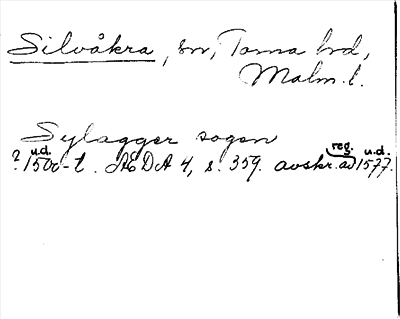 Silvåkra, sn, Torna hd,
Malm. l.
Sylagger sogen
u.d. reg. u.d.
? 1500-t. ÆDA 4, s. 359. avskr. av 1577.